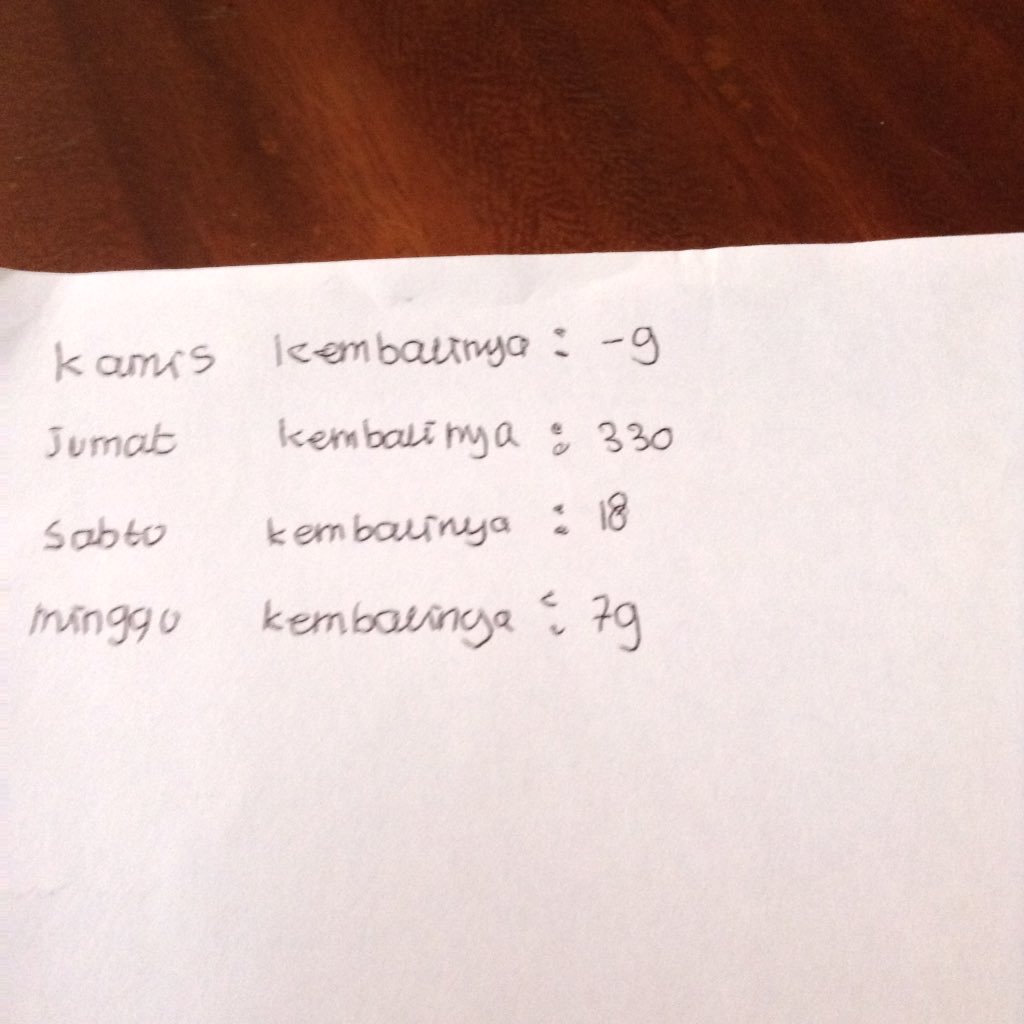 Kamis kembalinya : -9
Jumat kembalinya : 330
Sabto kembalinya : 18
minggu kembalinya : 79